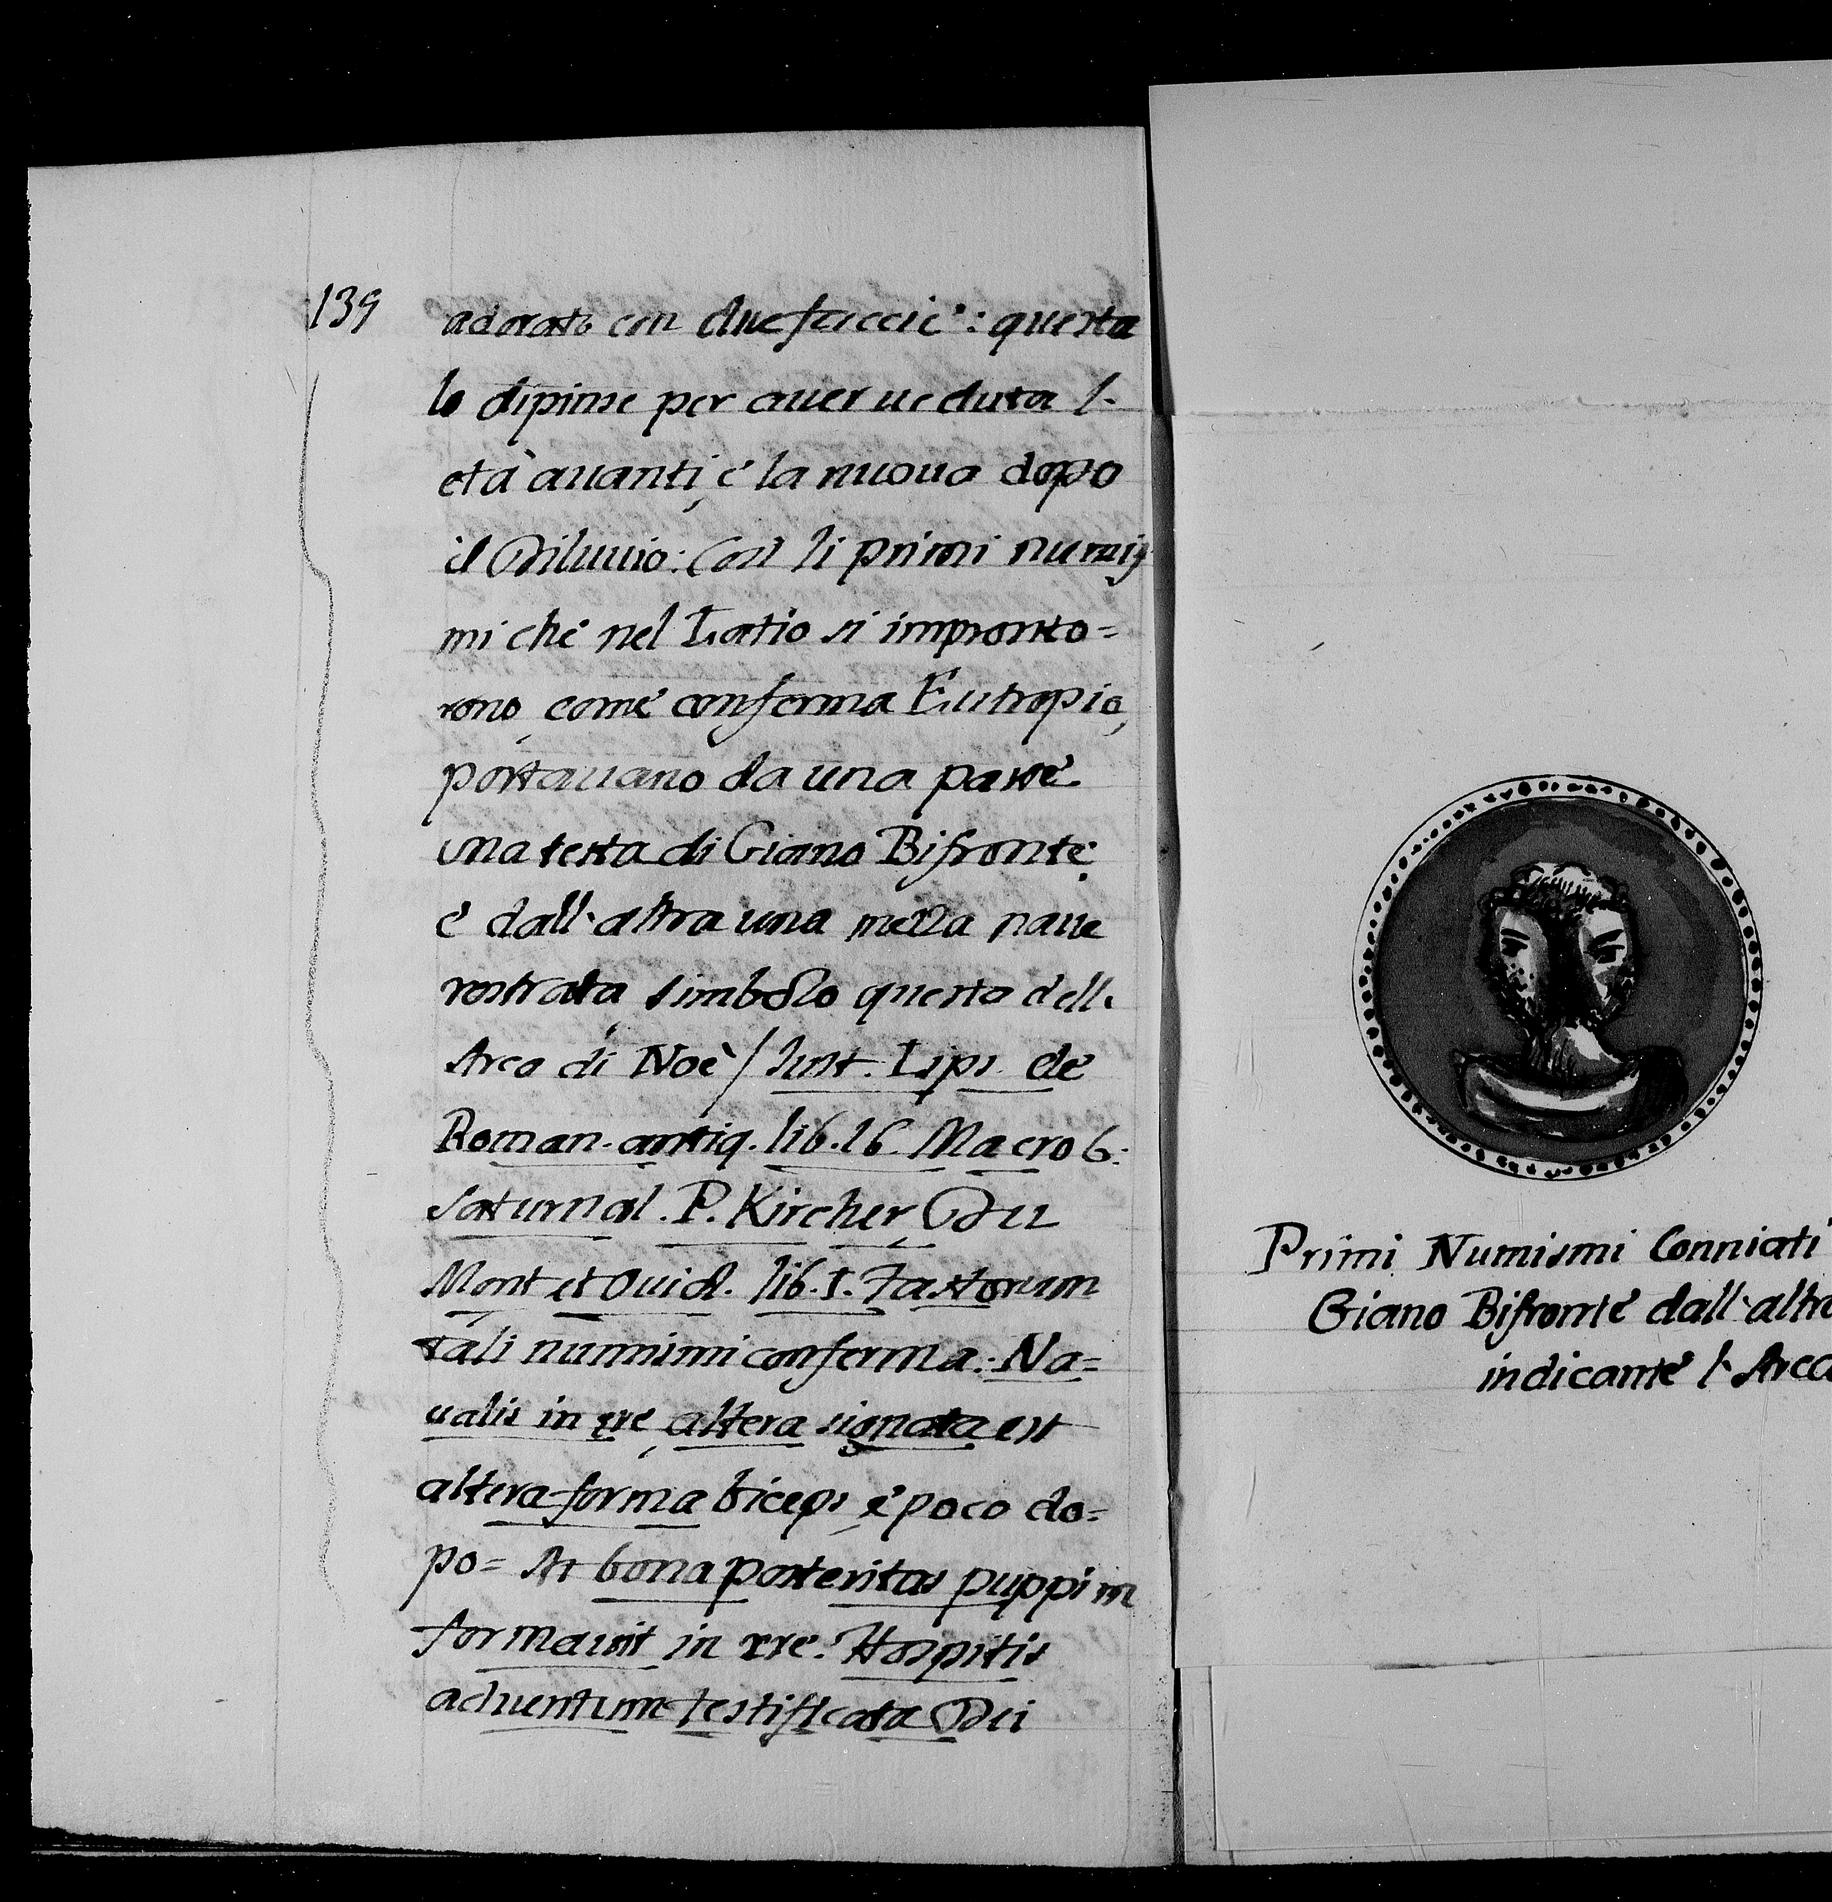 139
adorato con due faccie: questa
lo dipinse per auer ueduta l'
età auanti, e la nuoua dopo
il Diluuio: Così li primi numis
mi che nel Latio si impronto=
rono, come conferma Eutropio,
portauano da una parte
una testa di Giano Bifronte,
e dall'altra una mezza naue
rostrata, simbolo questo dell'
Arca di Noè / Iust. Lips. de
Roman. antiq. lib. 16. Macrob:
Saturnal. P. Kircher, Du
Mont, et Ouid. lib. I. Fastorum
tali nummi conferma: Na=
ualis in ære, altera signata est
altera forma biceps, e poco do=
po= At bona posteritas puppim
formauit in ære. Hospitis
aduentum testificata Dei
Primi Numismi Conniati
Giano Bifronte dall'altra
indicante l'Arca